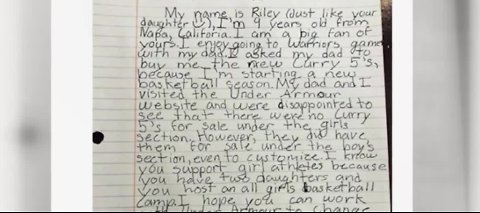 My name is Riley (Just like your
daughter), I'm 9 years old from
Napa, Califoria. I am a big fan of
yours. I enjoy going to Warriors game
with my dad. I asked my dad to
buy me the new Curry 5's,
because I'm starting a new
basketball season. My dad and I
visited the Under Armour
website and were disappointed to
see that there were no Curry
5's for sale under the girls
section. However, they did have
them for sale under the boy's
section, even to customize. I know
you support girl athletes because
you have two daughters and
you host an all girls basketball
camp. I hope you can work
Under Armour to change